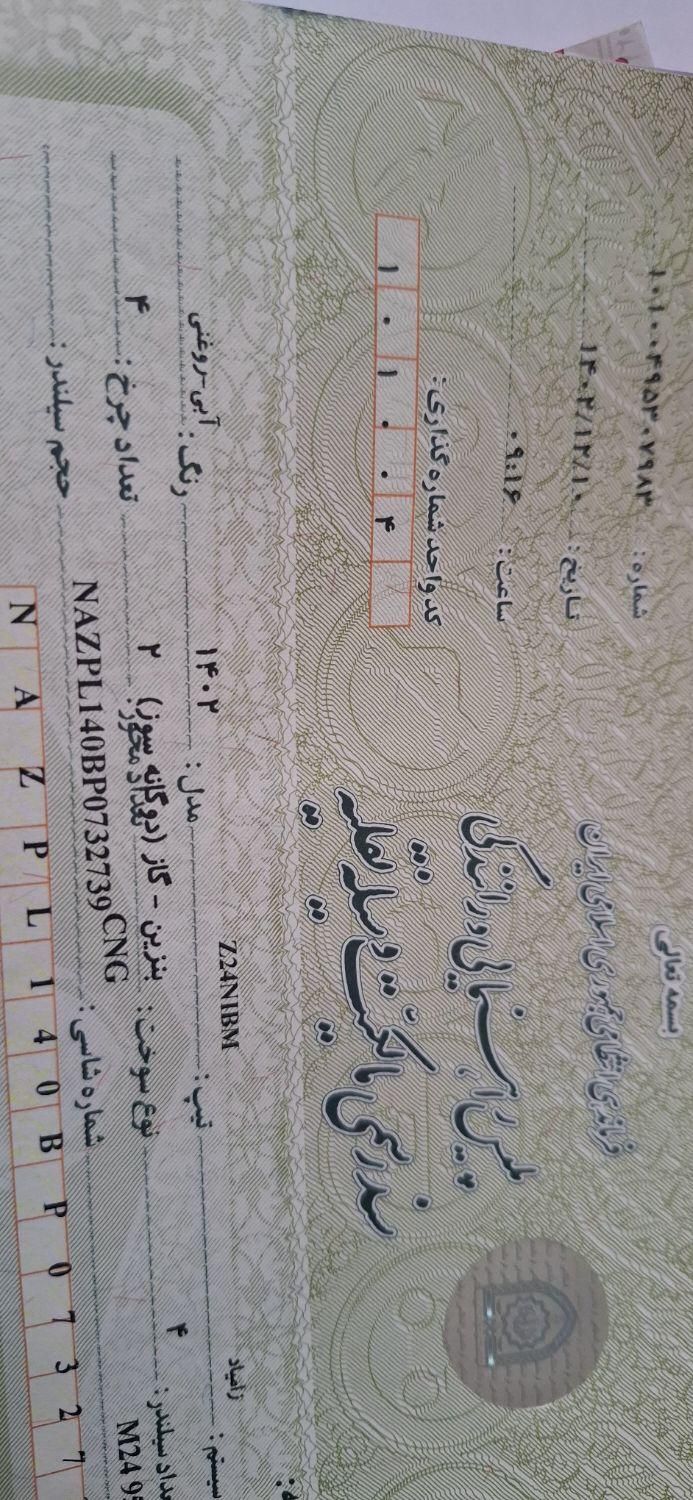 بسمه تعالی
فرماندهی انتظامی جمهوری اسلامی ایران
پلیس راهنمایی و رانندگی
سند رسمی مالکیت وسیله نقلیه
شماره: ۱۰۱۰۰۴۹۵۳۰۷۹۸۳
تاریخ: ۱۴۰۲/۱۲/۱۰
ساعت: ۰۹:۱۶
کد واحد شماره گذاری:
۱ ۰ ۱ ۰ ۰ ۴
سیستم: زامیاد تیپ: Z24NIBM مدل: ۱۴۰۲ رنگ: آبی-روغنی
تعداد سیلندر: ۴ نوع سوخت: بنزین - گاز (دوگانه سوز) CNG تعداد محور: ۲ تعداد چرخ: ۴
M24 شماره شاسی: NAZPL140BP0732739 حجم سیلندر:
N A Z P L 1 4 0 B P 0 7 3 2 7